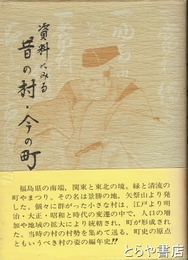 資料にみる
昔の村・今の町
福島県の南端、関東と東北の境。緑と清流の
町やまつり。その名は景勝の地、矢祭山より発
し、個々に群がった小さな村は、江戸より明
治・大正・昭和と時代の変遷の中で、人口の増
加や地域の拡大により統轄され、町が形成され
た。当時の村の村勢を集めて送る、町史の原点
ともいうべき村の姿の編年史!!
とらや書店